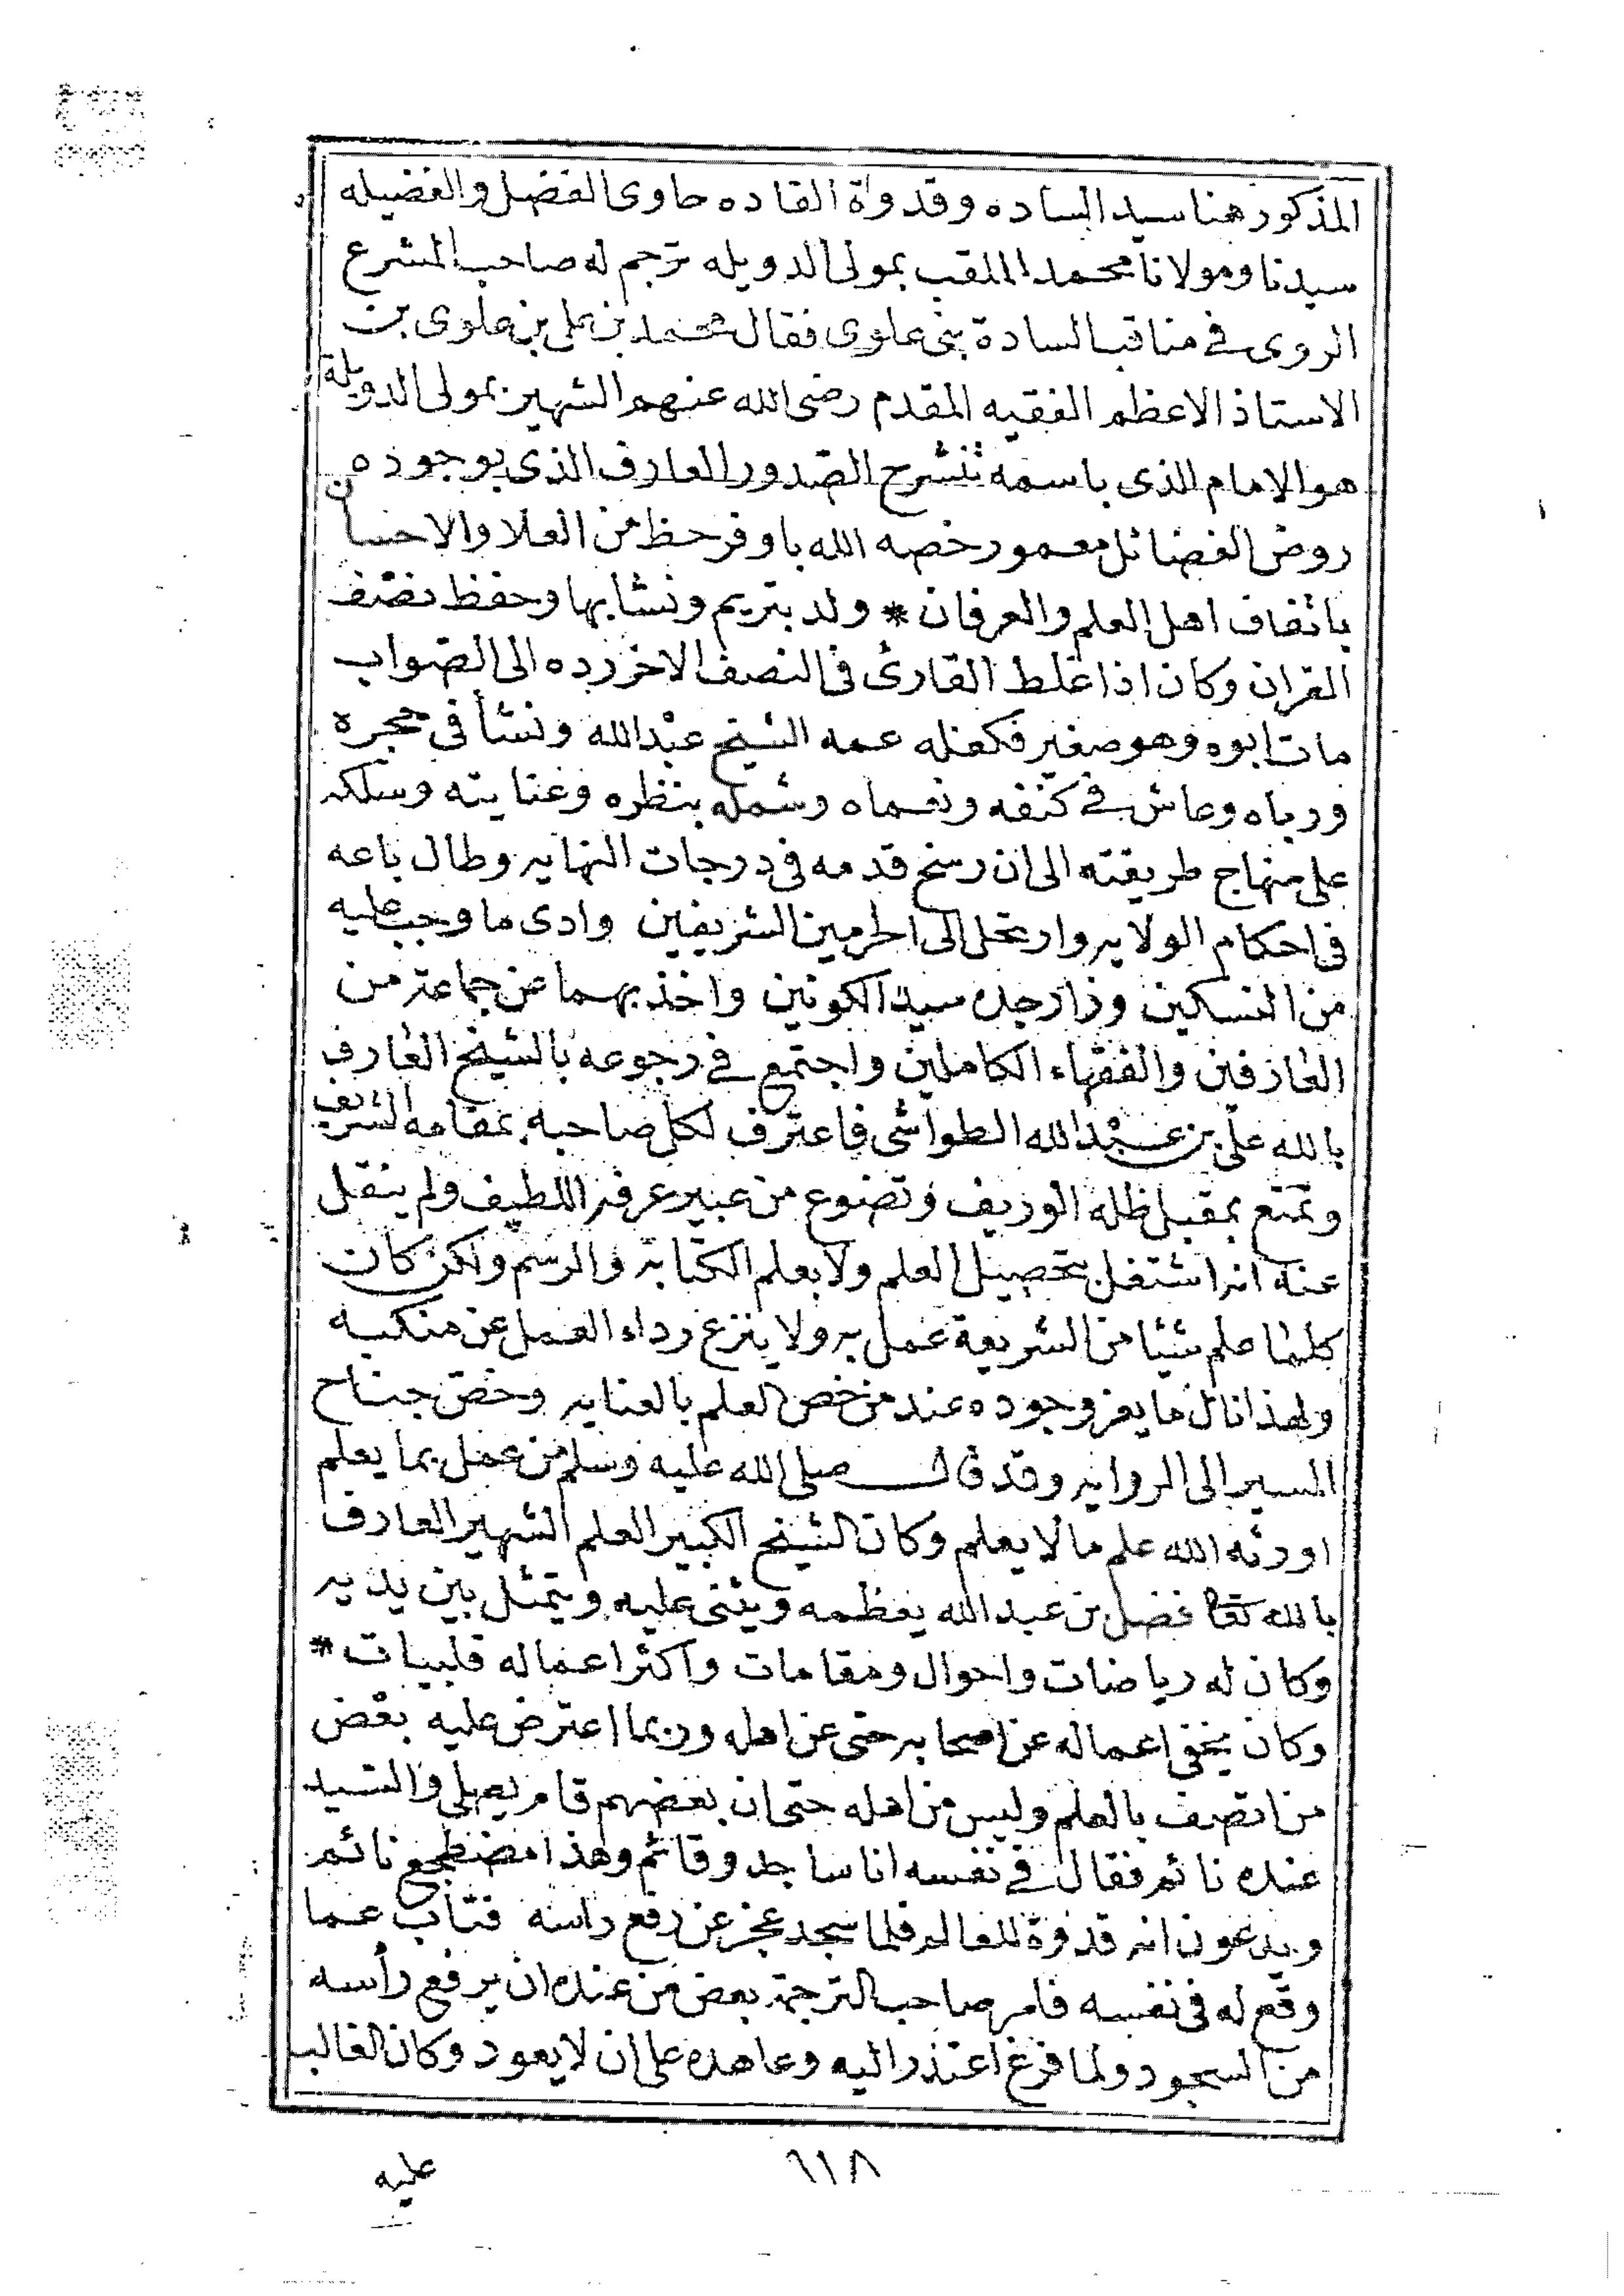 المذكور هنا سيد الساده وقدوة القاده حاوى الفضل والفضيله
سيدنا ومولانا محمد الملقب بمولى الدويله ترجم له صاحب المشرع
الروى في مناقب السادة بنى علوى فقال محمد بن على بن علوى بن
الاستاذ الاعظم الفقيه المقدم رضى الله عنهم الشهير بمولى الدويلة
هو الامام الذى باسمه تنشرح الصدور العارف الذى بوجوده
روض الفضائل معمور خصه الله باوفر حظ من العلا والاحسان
باتفاق اهل العلم والعرفان * ولد بتريم ونشا بها وحفظ نصف
القران وكان اذا غلط القارئ فى النصف الاخر رده الى الصواب
مات ابوه وهو صغير فكفله عمه الشيخ عبد الله ونشأ فى حجره
ورباه وعاش في كنفه ونعماه وشمله بنظره وعنايته وسلكه
على منهاج طريقته الى ان رسخ قدمه فى درجات النهايه وطال باعه
فى احكام الولايه وارتحل الى الحرمين الشريفين وادى ما وجب عليه
من النسكين وزار جده سيد الكونين واخذ بهما عن جماعة من
العارفين والفقهاء الكاملين واجتمع في رجوعه بالشيخ العارف
بالله على بن عبد الله الطواشى فاعترف لكل صاحبه بمقامه الشريف
وتمتع بمقيل ظله الوريف وتضوع من عبير عرفه اللطيف ولم ينقل
عنه انه اشتغل بتحصيل العلم ولا بعلم الكتابه والرسم ولكن كان
كلما علم شيئا من الشريعة عمل به ولا ينزع رداء العمل عن منكبيه
ولهذا نال ما يعز وجوده عند من خص العلم بالعنايه وخفض جناح
السير الى الروايه وقد قال صلى الله عليه وسلم من عمل بما يعلم
اورثه الله علم ما لا يعلم وكان الشيخ الكبير العلم الشهير العارف
بالله تعا فضل بن عبد الله يعظمه ويثنى عليه ويتمثل بين يديه
وكان له رياضات واحوال ومقامات واكثر اعماله قلبيات *
وكان يخفى اعماله عن اصحابه حتى عن اهله وربما اعترض عليه بعض
من اتصف بالعلم وليس من اهله حتى ان بعضهم قام يصلى والسيد
عنده نائم فقال في نفسه انا ساجد وقائم وهذا مضطجع نائم
ويدعون انه قدوة للعالم فلما سجد عجز عن رفع راسه فتاب عما
وقع له فى نفسه فامر صاحب الترجمة بعض من عنده ان يرفع رأسه
من السجود ولما فرغ اعتذر اليه وعاهده على ان لا يعود وكان الغالب
عليه
٦١٨